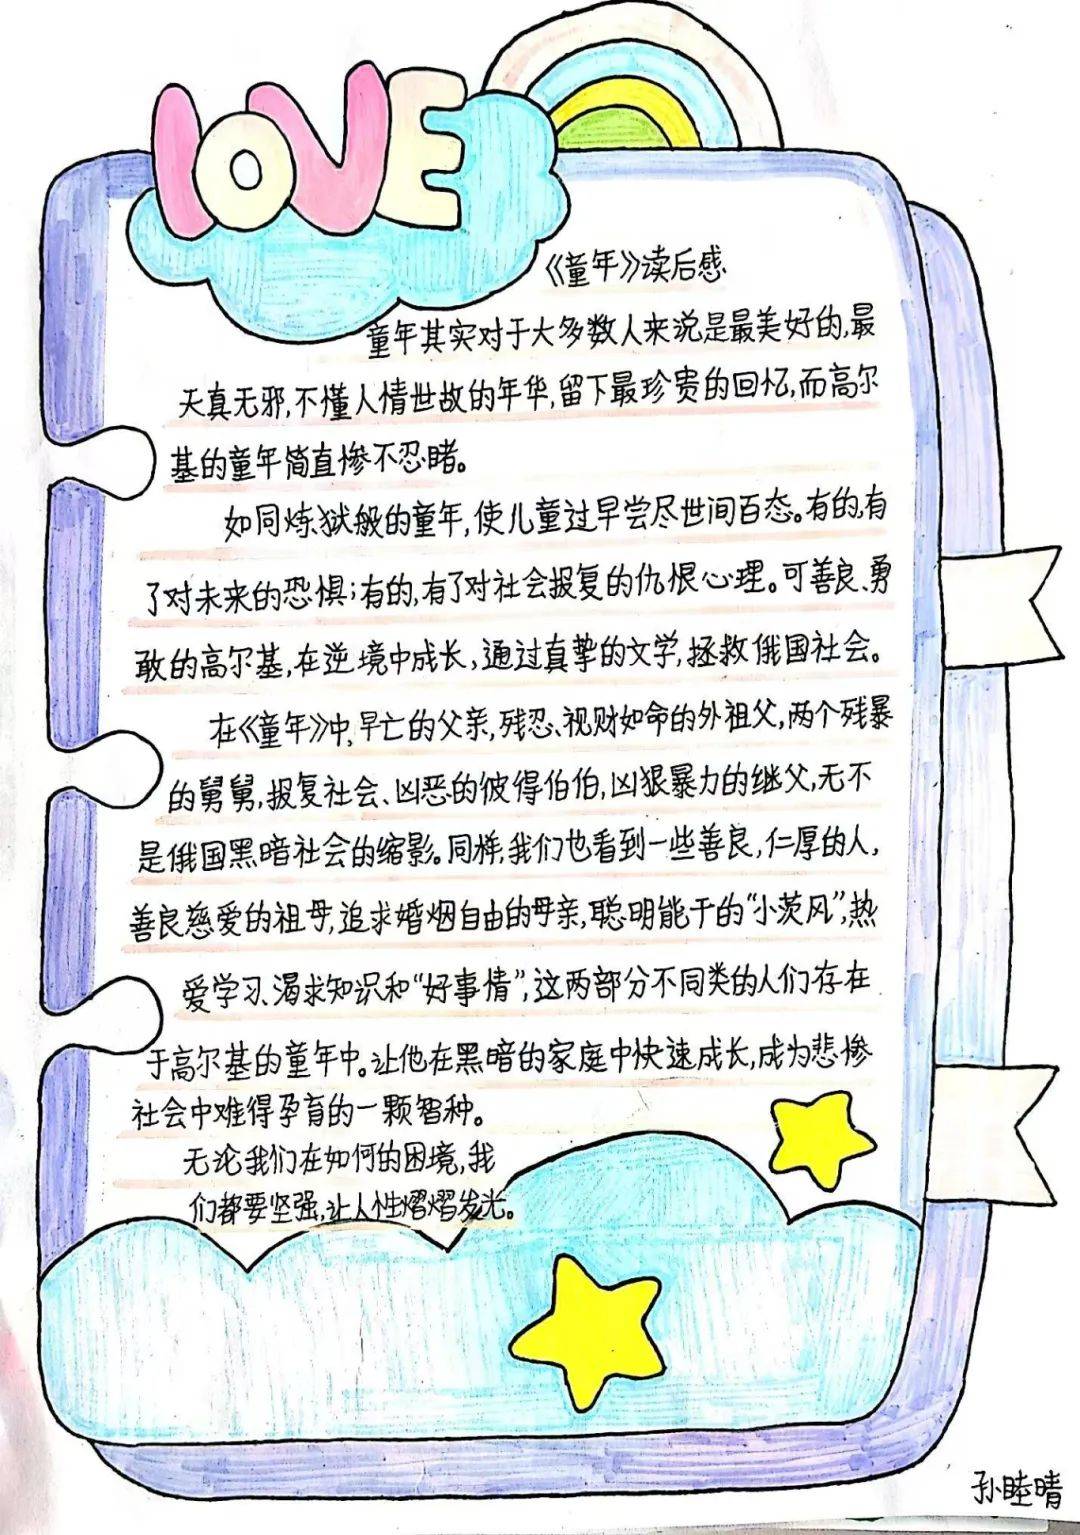 LOVE
《童年》读后感
童年其实对于大多数人来说是最美好的,最
天真无邪,不懂人情世故的年华,留下最珍贵的回忆,而高尔
基的童年简直惨不忍睹。
如同炼狱般的童年,使儿童过早尝尽世间百态。有的,有
了对未来的恐惧;有的,有了对社会报复的仇恨心理。可善良、勇
敢的高尔基,在逆境中成长,通过真挚的文学,拯救俄国社会。
在《童年》中,早亡的父亲,残忍、视财如命的外祖父,两个残暴
的舅舅,报复社会、凶恶的彼得伯伯,凶狠暴力的继父,无不
是俄国黑暗社会的缩影。同样,我们也看到一些善良,仁厚的人,
善良慈爱的祖母,追求婚姻自由的母亲,聪明能干的“小茨风”,热
爱学习、渴求知识和“好事情”,这两部分不同类的人们存在
于高尔基的童年中。让他在黑暗的家庭中快速成长,成为悲惨
社会中难得孕育的一颗智种。
无论我们在如何的困境,我
们都要坚强,让人性熠熠发光。
孙睦晴